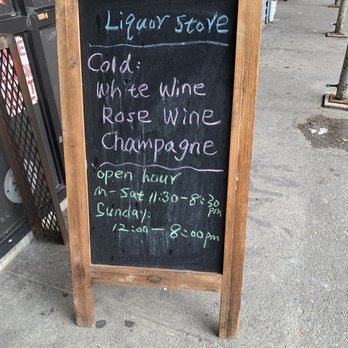 Liquor Store
Cold:
White Wine
Rose Wine
Champagne
open hour
M-Sat 11:30-8:30
pm
Sunday:
12:00-8:00pm